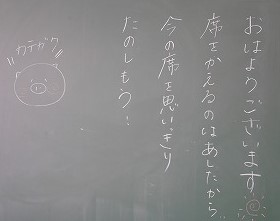 おはようございます。
席をかえるのはあしたから。
今の席を思いっきり
たのしもう！
カテガク